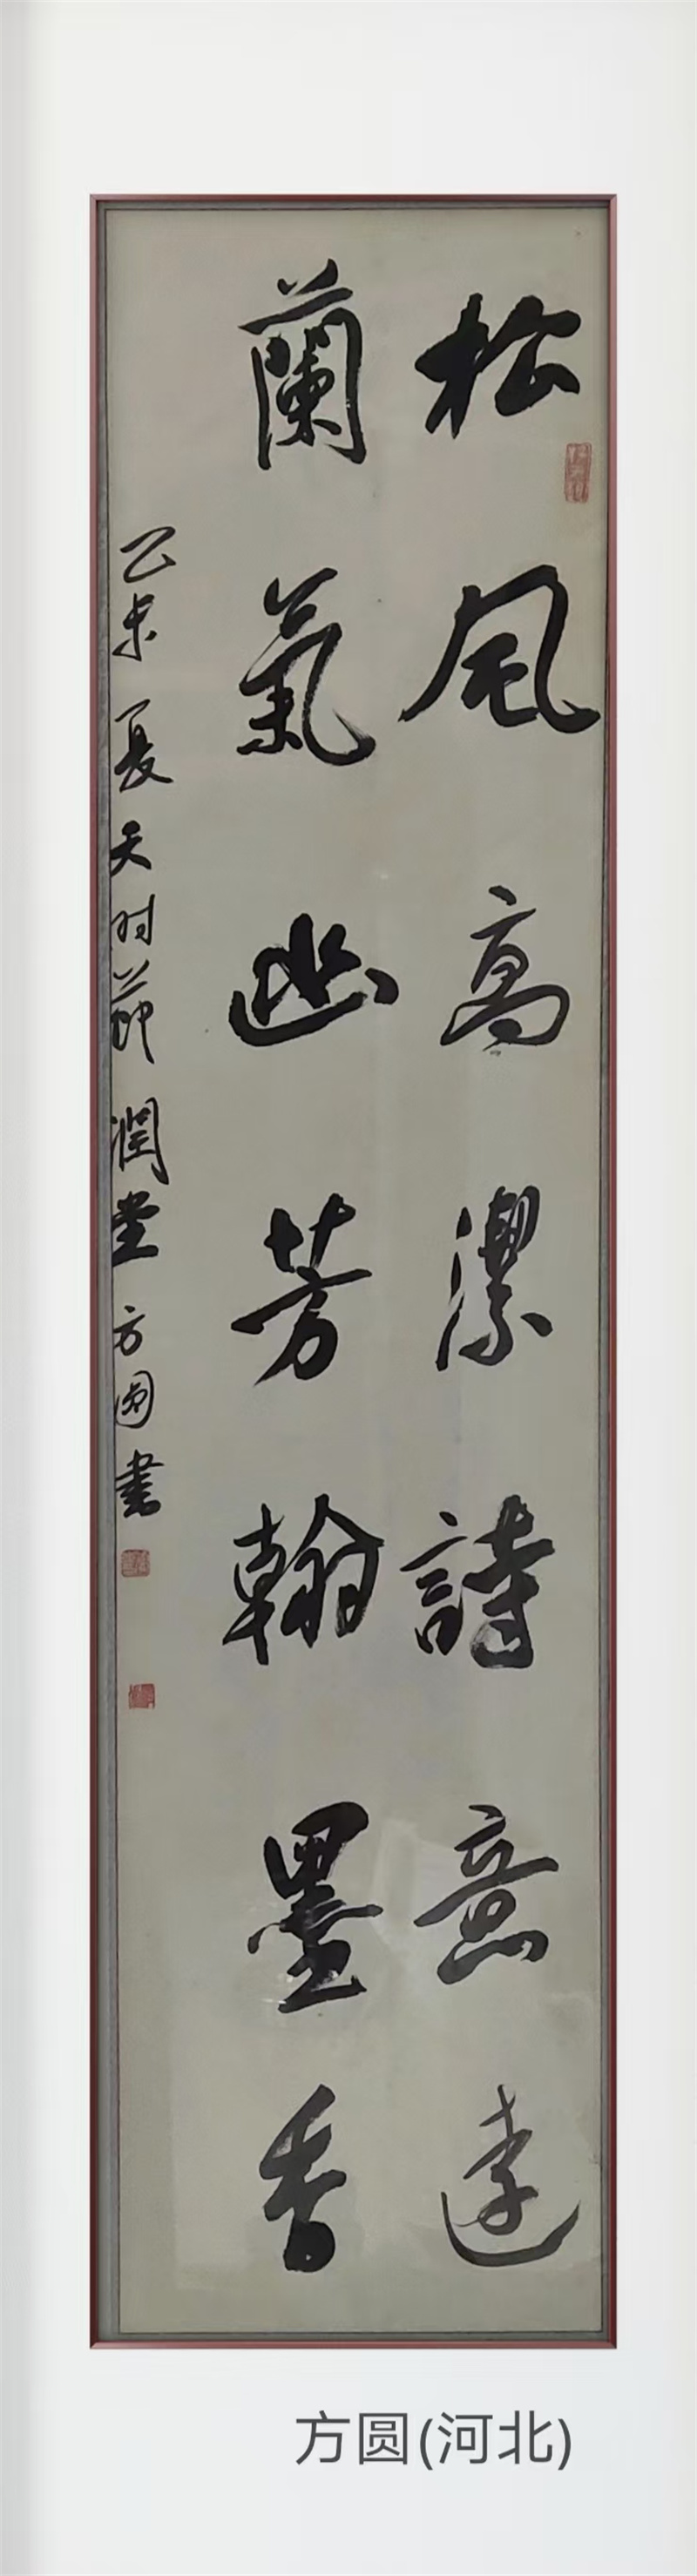 松風高潔詩意遠
蘭氣幽芳翰墨香
乙未夏天时節潤堂方圆書
方圆(河北)